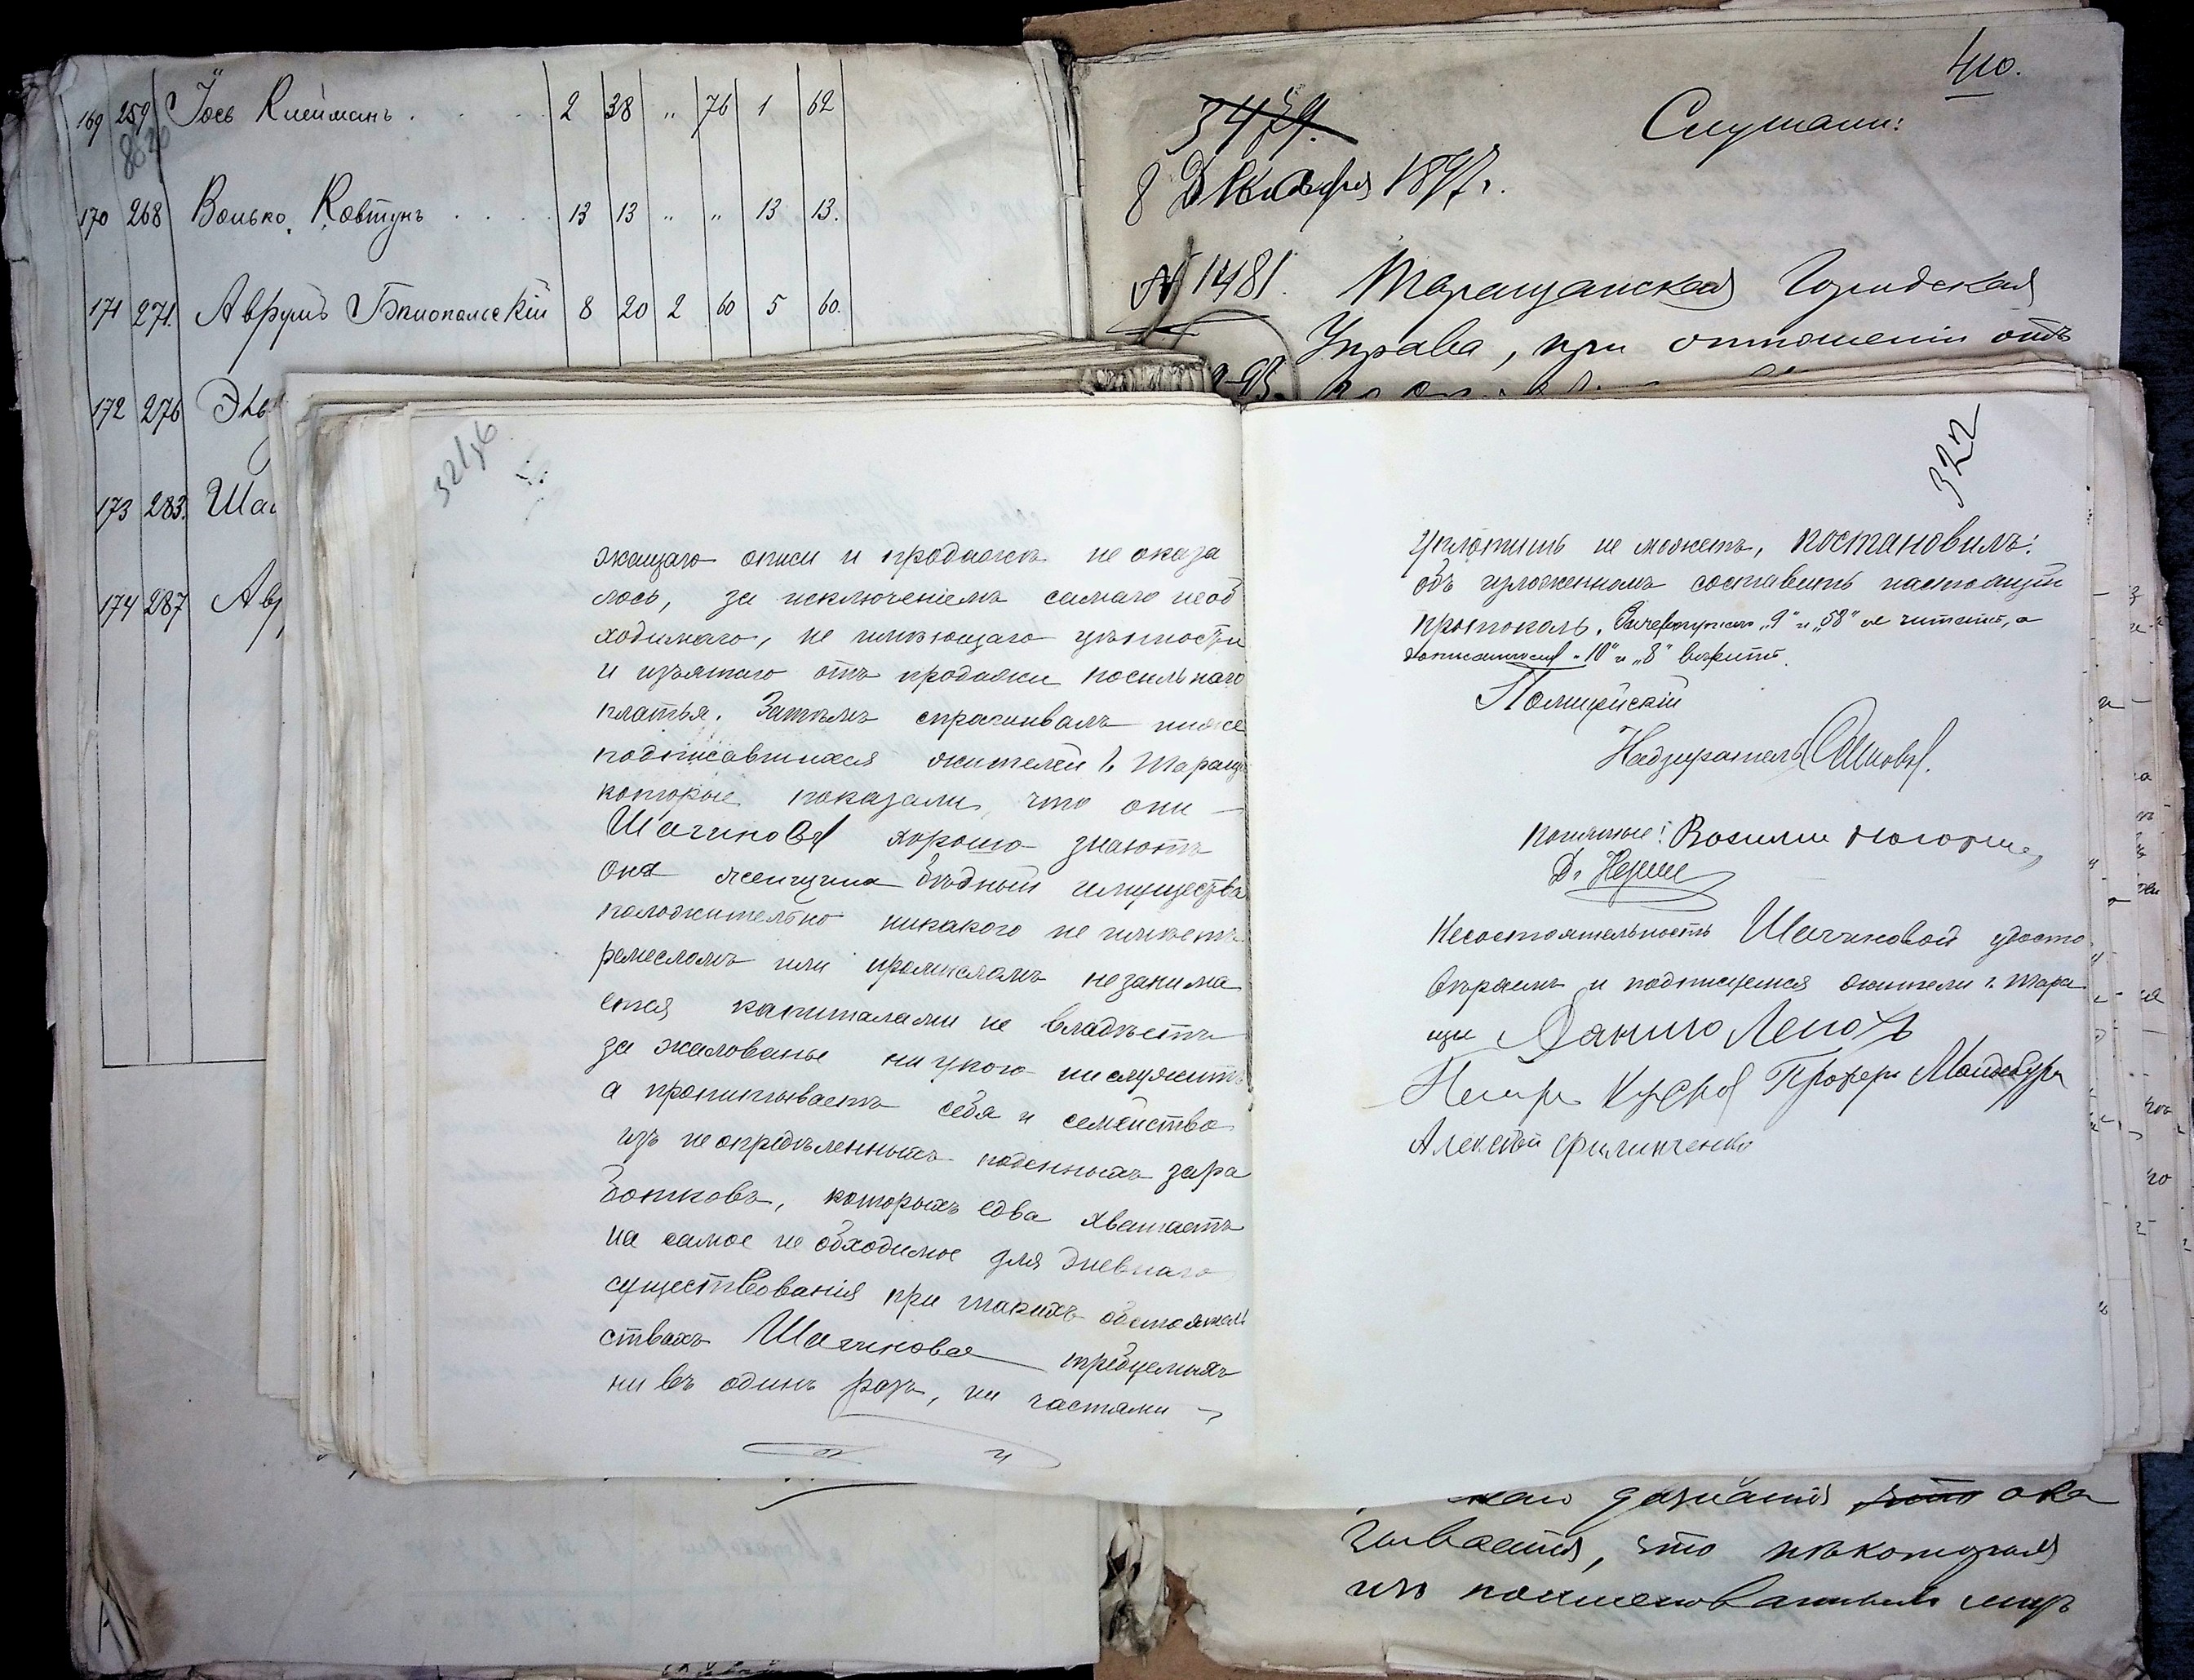 169 259 Іось Клейманъ . . . . 2 38 „ 76 1 62
170 268 Волько Ковтунъ . . . . 13 13 „ „ 13 13.
171 271. Аврумъ Бялопольскій 8 20 2 60 5 60.
172 276
173 283.
174 287
410.
Слушали:
8 Декабря 1897 г.
№ 1481. Таращанская Городская
Управа, при отношеніи отъ
321об
жащаго описи и продажѣ не оказа
лось, за исключеніемъ самаго необ
ходимаго, не имѣющаго цѣнности
и изъятаго отъ продажи носильнаго
платья. Затѣмъ спрашивалъ ниже
подписавшихся жителей г. Таращи
которые показали, что они —
Шагинову хорошо знаютъ
Она женщина бѣдный имущества
положительно никакого не имѣетъ
ремесломъ или промысломъ незанима
ется капиталами не владѣетъ
за жалованье ни укого не служитъ
а пропитываетъ себя и семейство
изъ неопредѣленныхъ поденныхъ зара
ботковъ, которыхъ едва хватаетъ
на самое не обходимое для дневнаго
существованія при такихъ обстоятель
ствахъ Шагинова требуемыхъ
ни въ одинъ разъ, ни частями
322
уплатить не можетъ, постановилъ:
объ изложенномъ составить настоящій
протоколъ. Зачеркнутое „9" и „58" не читать, а
написанному „10" и „8" вѣрить.
Полицейскій
Надзиратель
Понятые:
Несостоятельность Шагиновой удосто
вѣряемъ и подписуемся жители г. Тара
щи Данило
Алексѣй Филипченко
дознанія что ока
зывается, что нѣкоторыя
изъ поименованныхъ лицъ